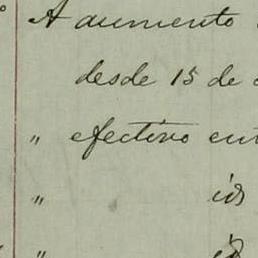 A aumento
desde 15 de
" efectivo ent
" id
" id